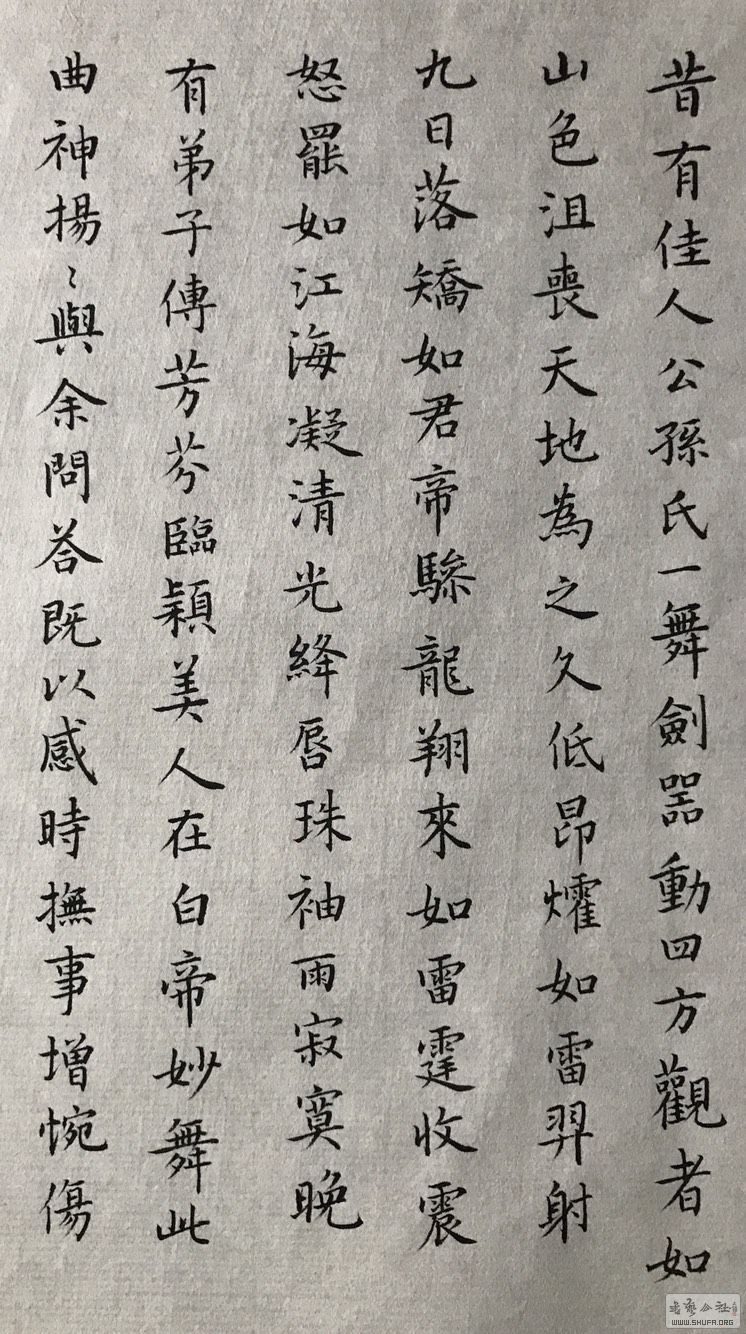 昔有佳人公孫氏一舞劍器動四方觀者如
山色沮喪天地為之久低昂燿如雷羿射
九日落矯如君帝驂龍翔來如雷霆收震
怒罷如江海凝清光絳唇珠袖雨寂寞晚
有弟子傳芳芬臨穎美人在白帝妙舞此
曲神揚〻與余問荅既以感時撫事增惋傷
WWW.SHUFA.ORG